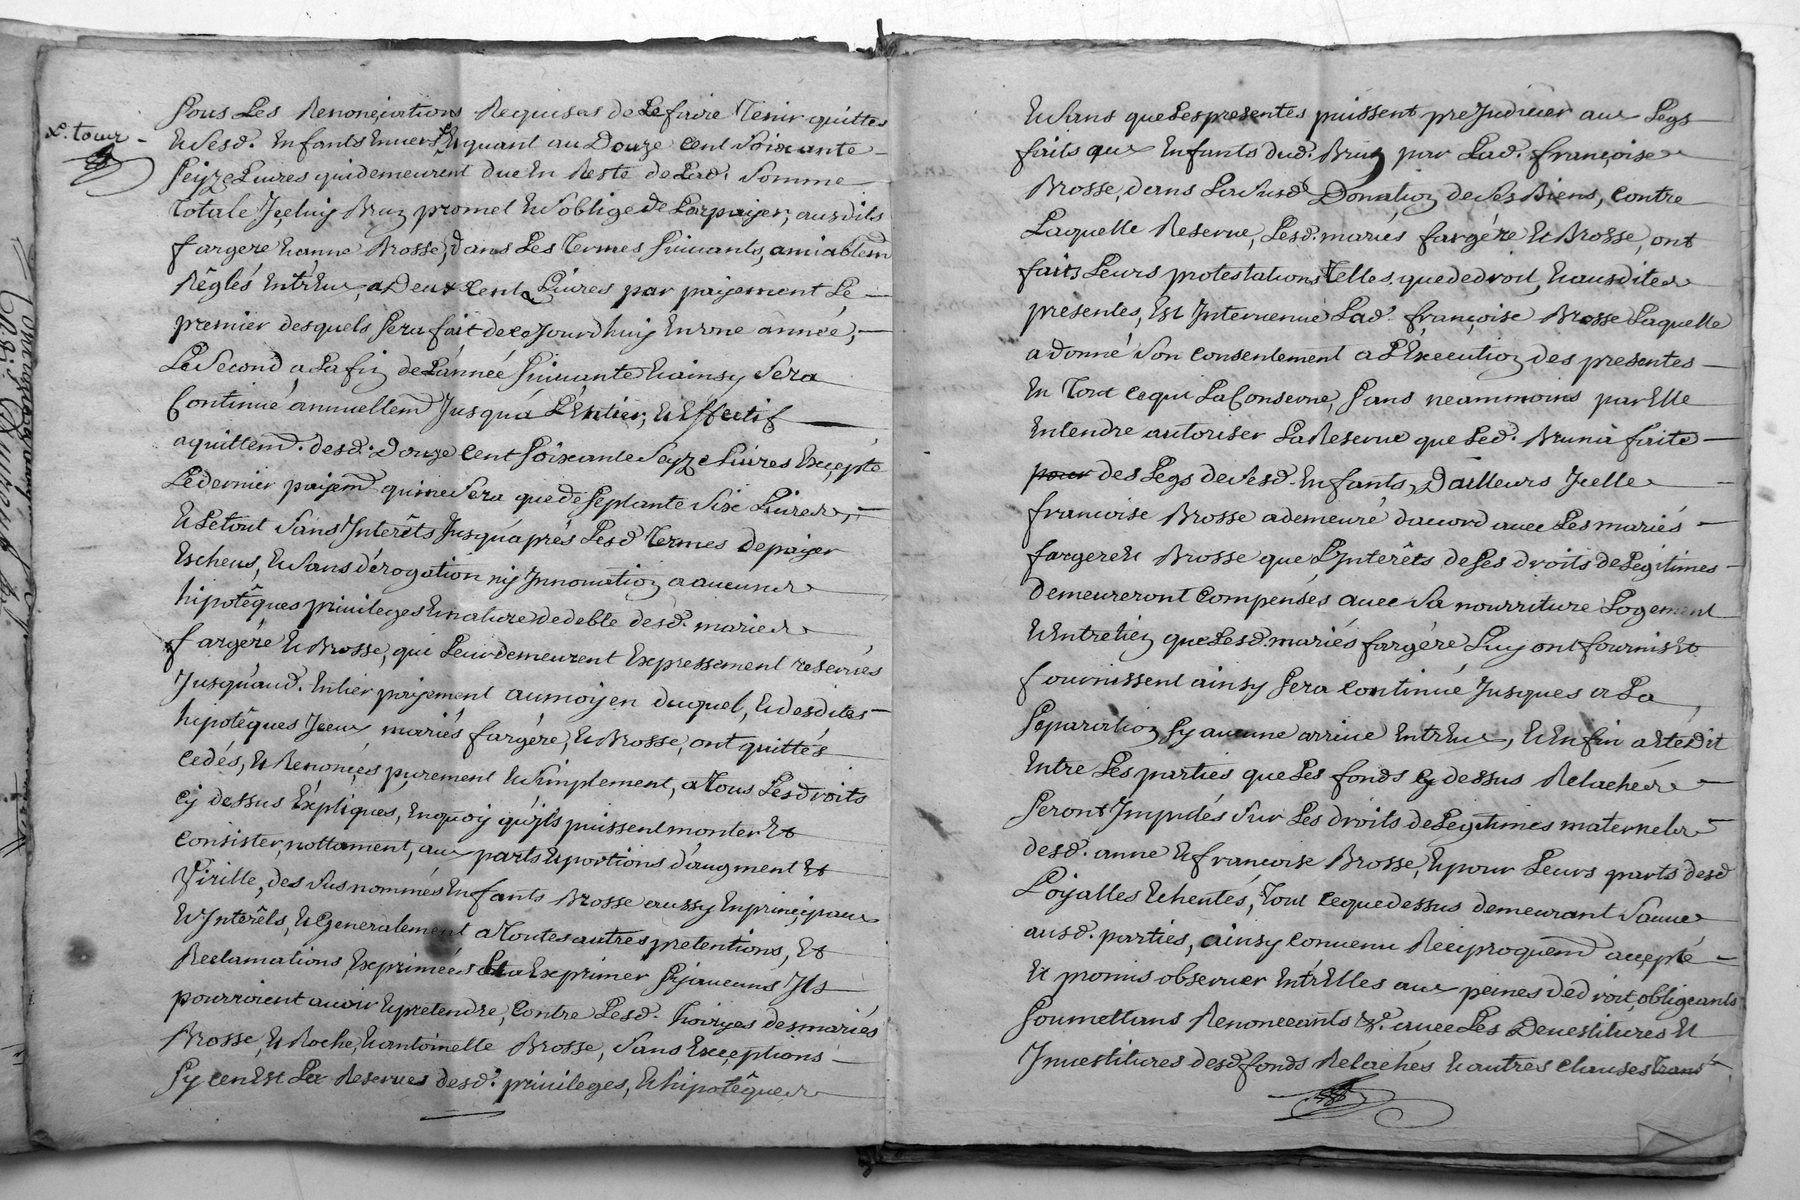 Sous Les Renonciations Requises de Le faire Tenir quittes
X. tour
Et Sesd. Enfants Envers Et quant au Douze Cent Soixante
Seize Livres qui demeurent due En Reste de Lad. Somme
Totale Iceluy Brun promet Et S'oblige de Lar payer, ausdits
fargere Et anne Brosse, dans Les Termes Suivants, amiablem
Réglés Entr'Eux, a Deux Cent Livres par payement Le
premier desquels Sera fait, de ce Jourd'huy En une année,
Le Second a La fin de L'année Suivante Et ainsy Sera
Continué annuellem Jusqu'a L'Entier, Et Effectif
aquittem. desd. Douze Cent Soixante Seyze Livres Excepté
Le dernier payem qui ne Sera que de Septante Six Livres,
Et Le tout Sans Interêts Jusqu'aprés Lesd. Termes de payer
Escheus, Et Sans dérogation ny Innovation a aucuns
hipotêques privileges Et nature de debte desd. mariés
fargére Et Brosse, qui Leur demeurent Expressement reservés
Jusqu'aud. Entier payement au moyen duquel, Et desdites
hipotêques Iceux mariés fargére, Et Brosse, ont quittés
Cedés, Et Renoncés purement Et Simplement, a Tous Les droits
cy dessus Expliqués, En quoy qu'jls puissent monter Et
Consister, nottament, aux parts Et portions d'augment Et
Virille, des Susnommés Enfants Brosse aussy En principaux
Et Interêts, Et Generalement a Toutes autres pretentions, Et
Reclamations Exprimées Et a Exprimer Sy aucuns Ils
pourroient avoir Et pretendre, Contre Lesd. hoiryes des mariés
Brosse, Et Roche, Et antoinette Brosse, Sans Exceptions
Sy cen Est La Reserves desd. privileges, Et hipotêques
Et Sans que Les presentes puissent preJudicier aux Legs
faits aux Enfants dud. Brun par Lad. françoise
Brosse, dans La Susd. Donation de Ses Biens, Contre
Laquelle Reserve, Lesd. mariés fargére Et Brosse, ont
faits Leurs protestations Telles que de droit, Et ausdites
presentes, Est Intervenue Lad. françoise Brosse Laquelle
a donné Son Consentement a L'Execution des presentes
En Tout ce qui La Conserne, Sans neammoins par Elle
Entendre autoriser La Reserve que Led. Brun a faite
pour des Legs de Sesd. Enfants, D'ailleurs Icelle
francoise Brosse a demeuré d'acord avec Les mariés
fargere Et Brosse que L'Interêts de Ses droits de Legitimes
Demeureront Compensés avec Sa nourriture Logement
Et Entretien que Lesd. mariés fargére Luy ont fournis Et
fournissent ainsy Sera Continué Jusques a La
Separation Sy aucune arrive Entr'Eux, Et Enfin a Eté dit
Entre Les parties que Les fonds Cy dessus Relachés
Seront Imputés Sur Les droits de Legitimes maternels
desd. anne Et francoise Brosse, Et pour Leurs parts desd
Loyalles Echentés, Tout ce que dessus demeurant Sauve
ausd. parties, ainsy Convenu Reciproquem accepté
Et promis observer Entr'Elles aux peines de droit, obligeants
Soumettans Renonceants &. avec Les Devestitures Et
Investitures desd. fonds Relachés Et autres Clauses trans